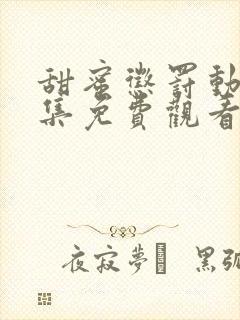 甜蜜懲罰動
集免費觀看
夜寂夢 黑弧